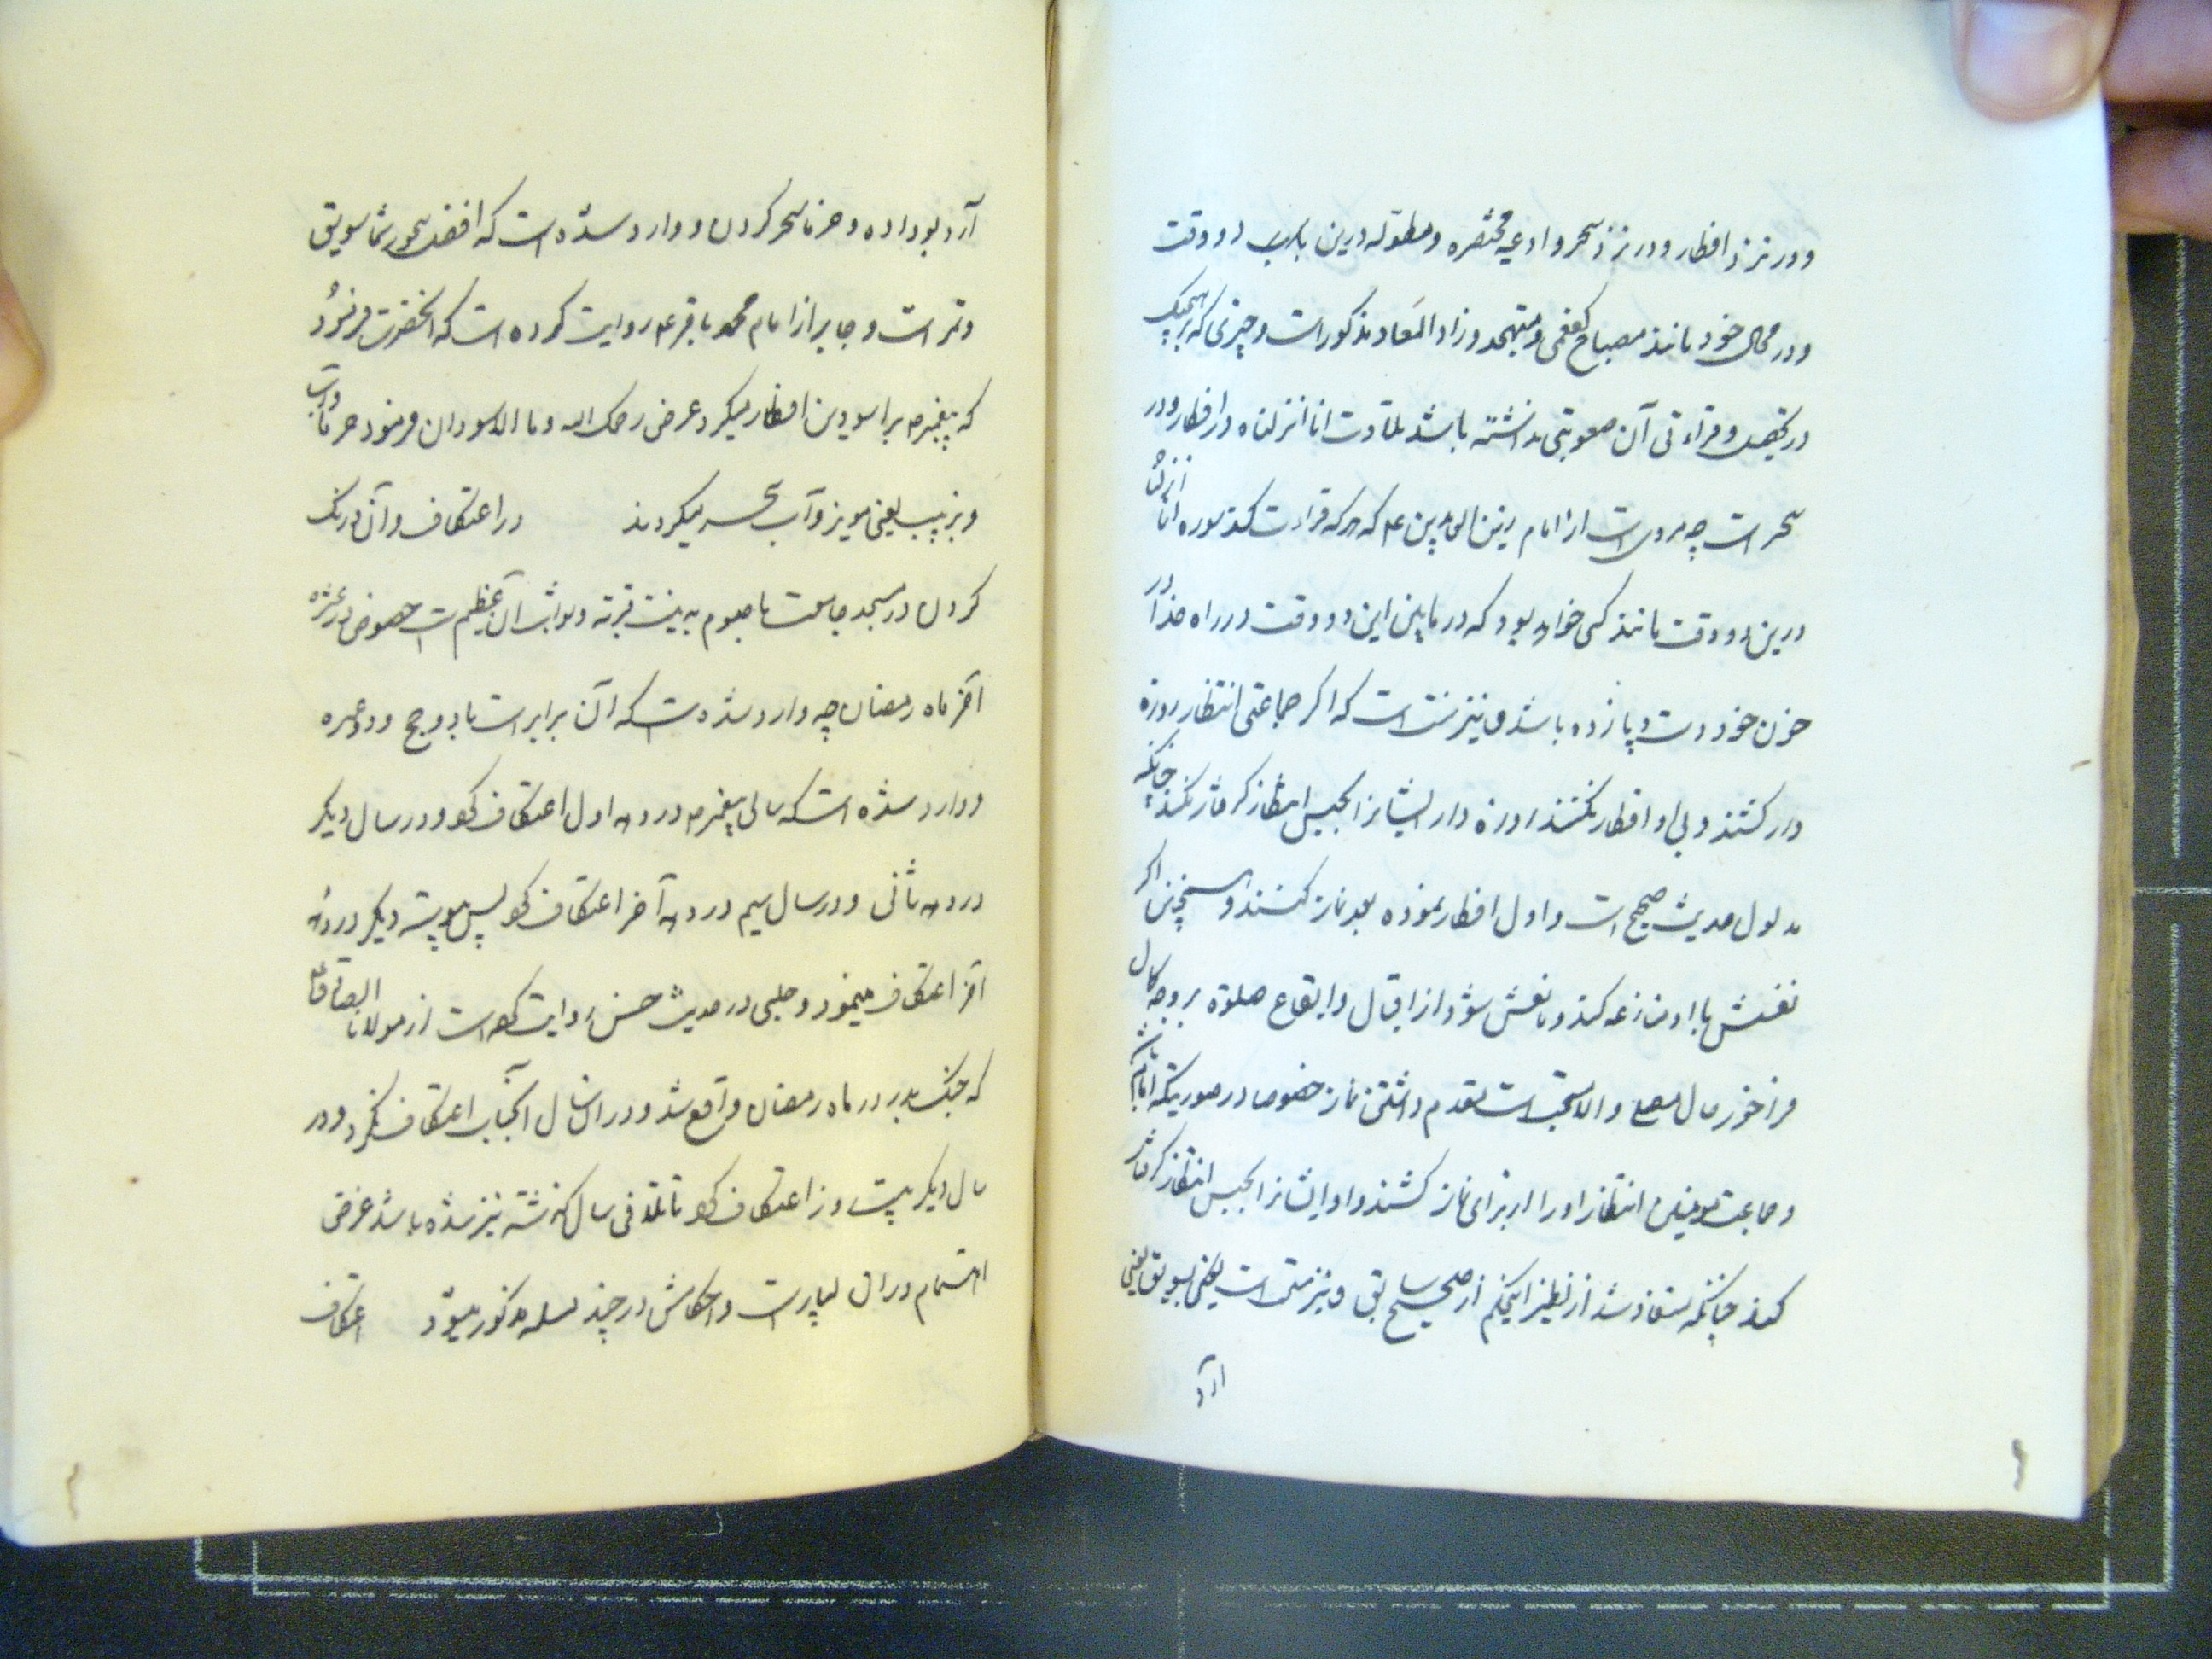 و در نزد افطار و در نزد سحر و ادعیه مختصره و مطوله درین باب دو وقت
و در محال خود مانند مصباح کفعمی و متهجد و زاد المعاد مذکور است و چیزی که بر هیچیک
در تحصیل و قراءتی آن صعوبتی نداشته باشد تلاوت انا انزلناه در افطار و در
سحر است چه مرویست از امام زین العابدین ع که هر که قراءت کند سوره انا انزلنا
درین دو وقت مانند کسی خواهد بود که در مابین این دو وقت در راه خدا در
خون خود دست و پا زده باشد و نیز سنت است که اگر جماعتی انتظار روزه
دار کشند و بی او افطار نکنند روزه دار ایشانرا بحبس انتظار گرفتار نکند چنانکه
مدلول حدیث صحیح است و اول افطار نموده بعد نماز کنند و همچنین اگر
نفسش با او منازعه کند و مانعش شود از اقبال و ایقاع صلوة بر وجه کمال
فراخور حال مصلی و الا مستحب است تقدم داشتن نماز خصوصا در صورتیکه امام باشد
و جماعت مومنین انتظار او را از برای نماز کشند و او ایشانرا بحبس انتظار گرفتار
کند چنانکه مستفاد شد از نظیر اینحکم از صحیح سابق و نیز سنت است بسویق یعنی
آرد
آرد بو داده و خرما سحر کردن و وارد شده است که افضل سحور شما سویق
و تمر است و جابر از امام محمد باقر ع روایت کرده است که انحضرت فرمود
که پیغمبر ص باسودین افطار میکرد عرض رحمک الله و ما الاسودان فرمود خرما و آب
و بزبیب یعنی مویز و آب سحر میکردند در اعتکاف و آن درنک
کردن در مسجد جامعست با صوم به نیت قربة و ثواب آن عظیم است خصوص در عشره
آخر ماه رمضان چه وارد شده است که آن برابر است با دو حج و دو عمره
و وارد شده است که سالی پیغمبر ص در دهه اول اعتکاف کرد و در سال دیگر
در دهه ثانی و در سال سیم در دهه آخر اعتکاف کرد پس پیوسته دیگر در دهه
آخر اعتکاف مینمود و حلبی در حدیث حسن روایت کرده است از مولانا الصادق ع
که جنک بدر در ماه رمضان واقع شد و در آن سال آنجناب اعتکاف نکرد و در
سال دیگر بیست روز اعتکاف کرد تا تلافی سال گذشته نیز شده باشد غرض
اهتمام در آن بسیار است و احکامش در چند مسله مذکور میشود اعتکاف